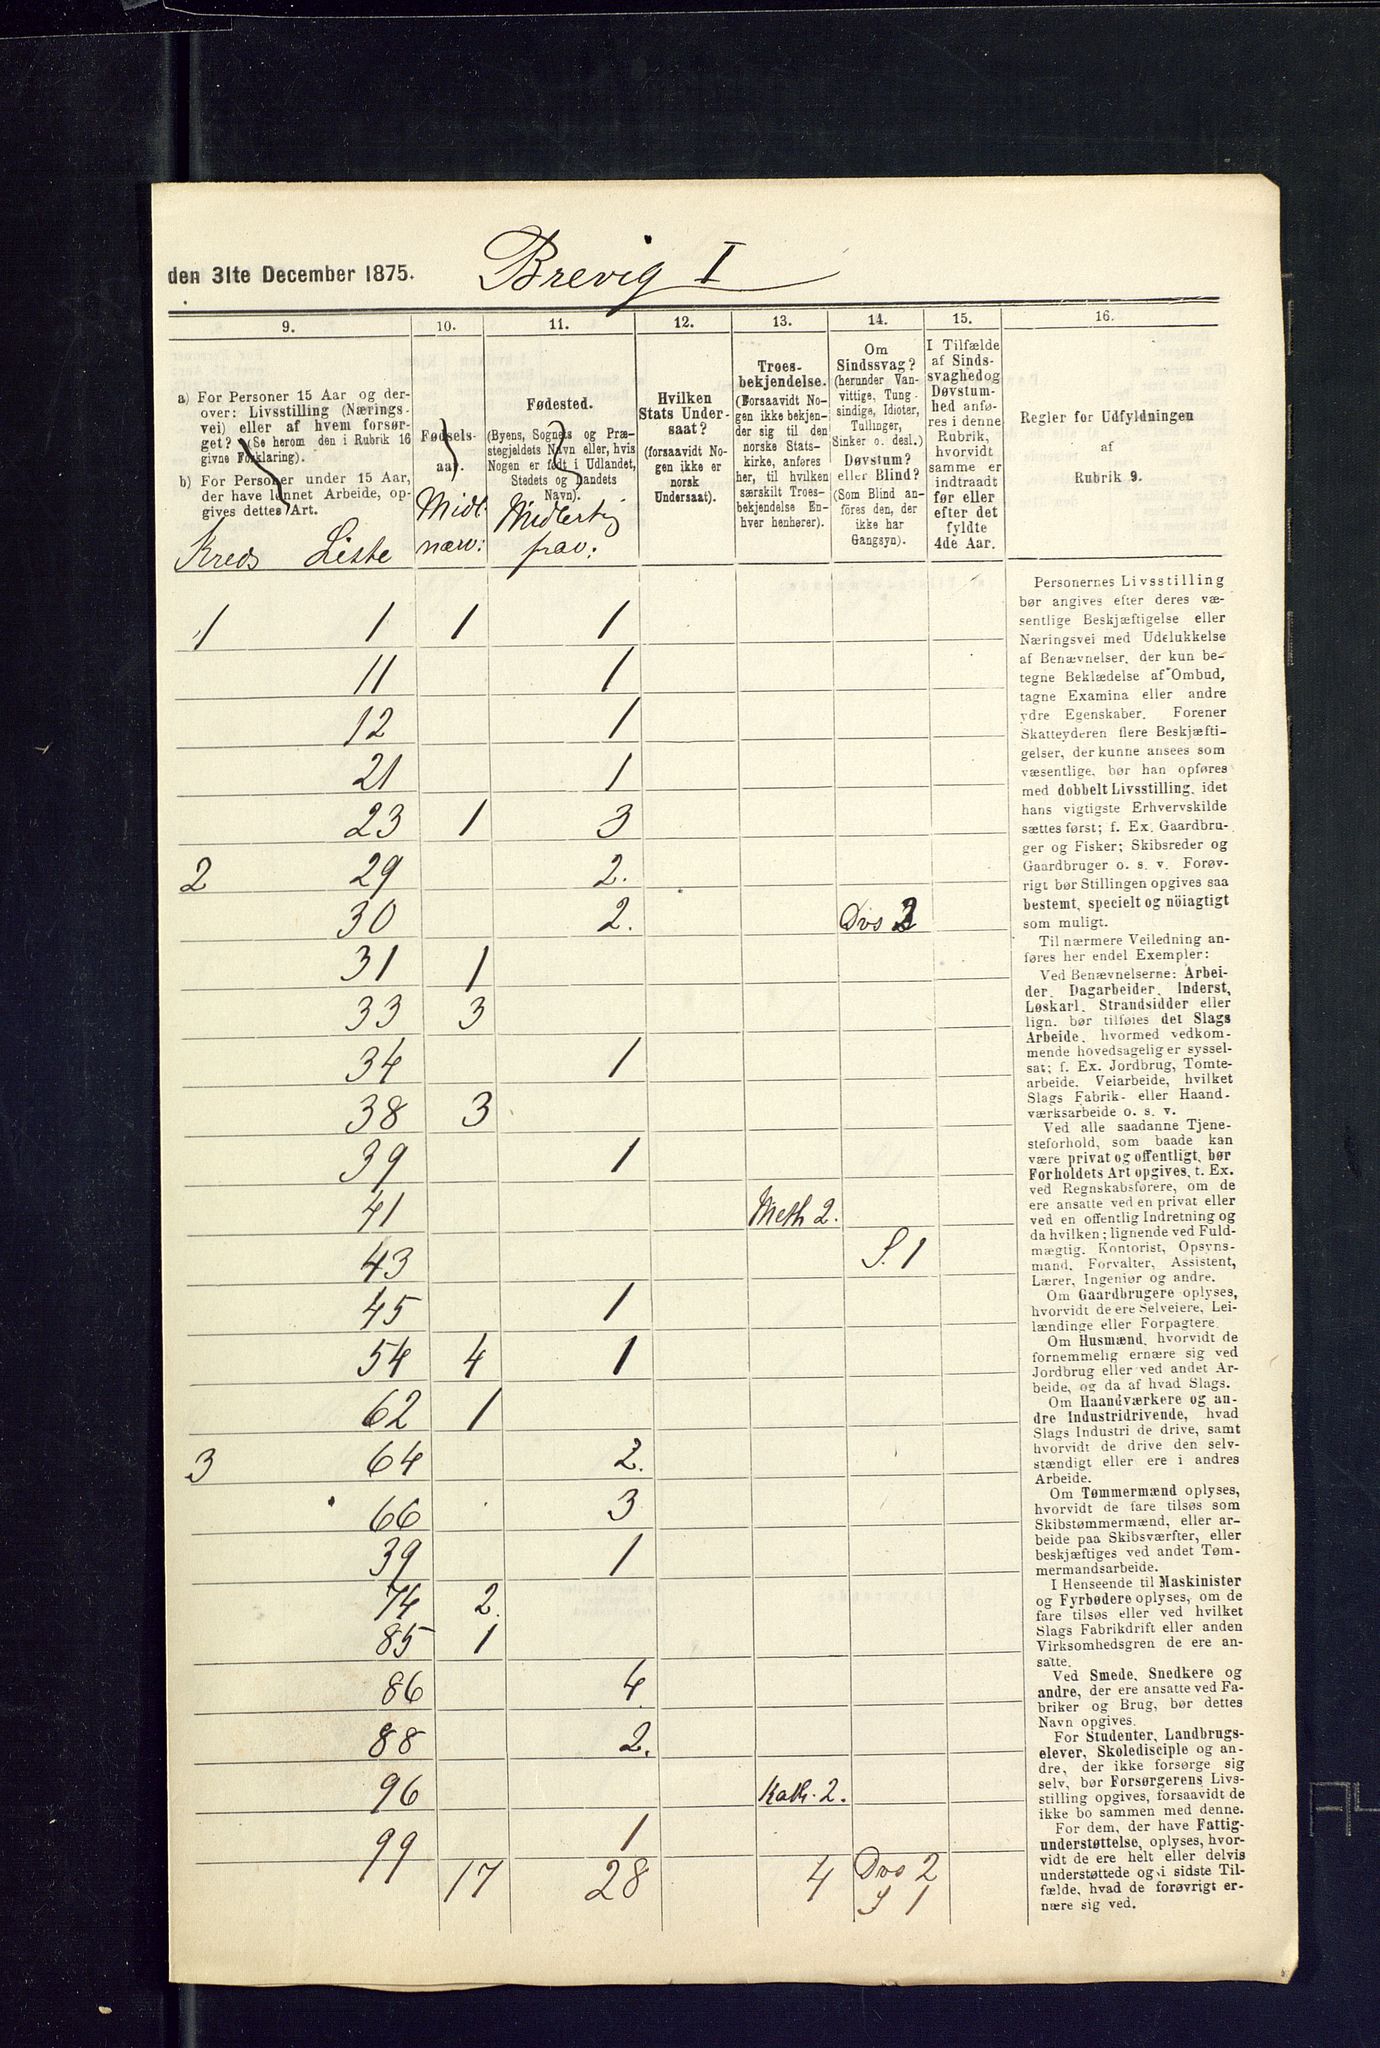 den 31te December 1875. Brevig I
9. 10. 11. 12. 13. 14. 15. 16.
a) For Personer 15 Aar og der-
over: Livsstilling (Nærings-
vei) eller af hvem forsør-
get? (Se herom den i Rubrik 16
givne Forklaring).
b) For Personer under 15 Aar,
der have lønnet Arbeide, op-
gives dettes Art.
Kreds Liste
Fødsels-
aar.
Midl.
nærv:
Fødested.
(Byens, Sognets og Præ-
stegjeldets Navn eller, hvis
Nogen er født i Udlandet,
Stedets og Landets
Navn).
Midlertig
frav:
Hvilken
Stats Under-
saat?
(forsaavidt No-
gen ikke er
norsk
Undersaat).
Troes-
bekjendelse.
(Forsaavidt No-
gen ikke bekjen-
der sig til den
norske Stats-
kirke, anføres
her, til hvilken
særskilt Troes-
bekjendelse En-
hver henhører).
Om
Sindssvag?
(herunder Van-
vittige, Tung-
sindige, Idioter,
Tullinger,
Sinker o. desl.)
Døvstum?
eller Blind?
(Som Blind an-
føres den, der
ikke har
Gangsyn).
I Tilfælde
af Sinds-
svaghed og
Døvstum-
hed anfø-
res i denne
Rubrik,
hvorvidt
samme er
indtraadt
før eller
efter det
fyldte
4de Aar.
Regler for Udfyldningen
af
Rubrik 9.
1 1 1 1
11 1
12 1
21 1
23 1 3
2 29 2.
30 2. Dvs 2
31 1
33 3
34 1
38 3
39 1
41 Meth 2.
43 S. 1
45 1
54 4 1
62 1
3 64 2.
66 3
39 1
74 2.
85 1
86 4.
88 2.
96 Kath. 2.
99 1
17 28 4 Dvs 2
S 1
Personernes Livsstilling
bør angives efter deres væ-
sentlige Beskjæftigelse eller
Næringsvei med Udelukkelse
af Benævnelser, der kun be-
tegne Beklædelse af Ombud,
tagne Examina eller andre
ydre Egenskaber. Forener
Skatteyderen flere Beskjæfti-
gelser, der kunne ansees som
væsentlige, bør han opføres
med dobbelt Livsstilling, idet
hans vigtigste Erhvervskilde
sættes først; f. Ex. Gaardbru-
ger og Fisker; Skibsreder og
Gaardbruger o. s. v. Forøv-
rigt bør Stillingen opgives saa
bestemt, specielt og nöiagtigt
som muligt.
Til nærmere Veiledning an-
føres her endel Exempler:
Ved Benævnelserne: Arbei-
der, Dagarbeider, Inderst,
Løskarl, Strandsidder eller
lign. bør tilføies det Slags
Arbeide, hvormed vedkom-
mende hovedsagelig er syssel-
sat; f. Ex. Jordbrug, Tomte-
arbeide, Veiarbeide, hvilket
Slags Fabrik- eller Haand-
værksarbeide o. s. v.
Ved alle saadanne Tjene-
steforhold, som baade kan
være privat og offentligt, bør
Forholdets Art opgives, t. Ex.
ved Regnskabsførere, om de
ere ansatte ved en privat eller
ved en offentlig Indretning og
da hvilken; lignende ved Fuld-
mægtig, Kontorist, Opsyns-
mand, Forvalter, Assistent,
Lærer, Ingeniør og andre.
Om Gaardbrugere oplyses,
hvorvidt de ere Selveiere, Lei-
lændinge eller Forpagtere.
Om Husmænd, hvorvidt de
fornemmelig ernære sig ved
Jordbrug eller ved andet Ar-
beide, og da af hvad Slags.
Om Haandværkere og an-
dre Industridrivende, hvad
Slags Industri de drive, samt
hvorvidt de drive den selv-
stændigt eller ere i andres
Arbeide.
Om Tømmermænd oplyses,
hvorvidt de fare tilsøs som
Skibstømmermænd, eller ar-
beide paa Skibsværfter, eller
beskjæftiges ved andet Tøm-
mermandsarbeide.
I Henseende til Maskinister
og Fyrbødere oplyses, om de
fare tilsøs eller ved hvilket
Slags Fabrikdrift eller anden
Virksomhedsgren de ere an-
satte.
Ved Smede, Snedkere og
andre, der ere ansatte ved Fa-
briker og Brug, bør dettes
Navn opgives.
For Studenter, Landbrugs-
elever, Skoledisciple og an-
dre, der ikke forsørge sig
selv, bør Forsørgerens Livs-
stilling opgives, forsaavidt de
ikke bo sammen med denne.
For dem, der have Fattig-
understøttelse, oplyses, hvor-
vidt de ere helt eller delvis
understøttede og i sidste Til-
fælde, hvad de forøvrigt er-
nære sig ved.